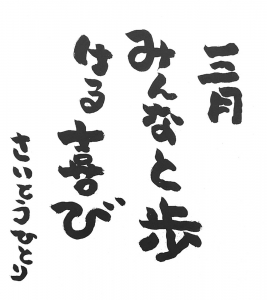 三月
みんなと歩
ける喜び
さいとうすとう